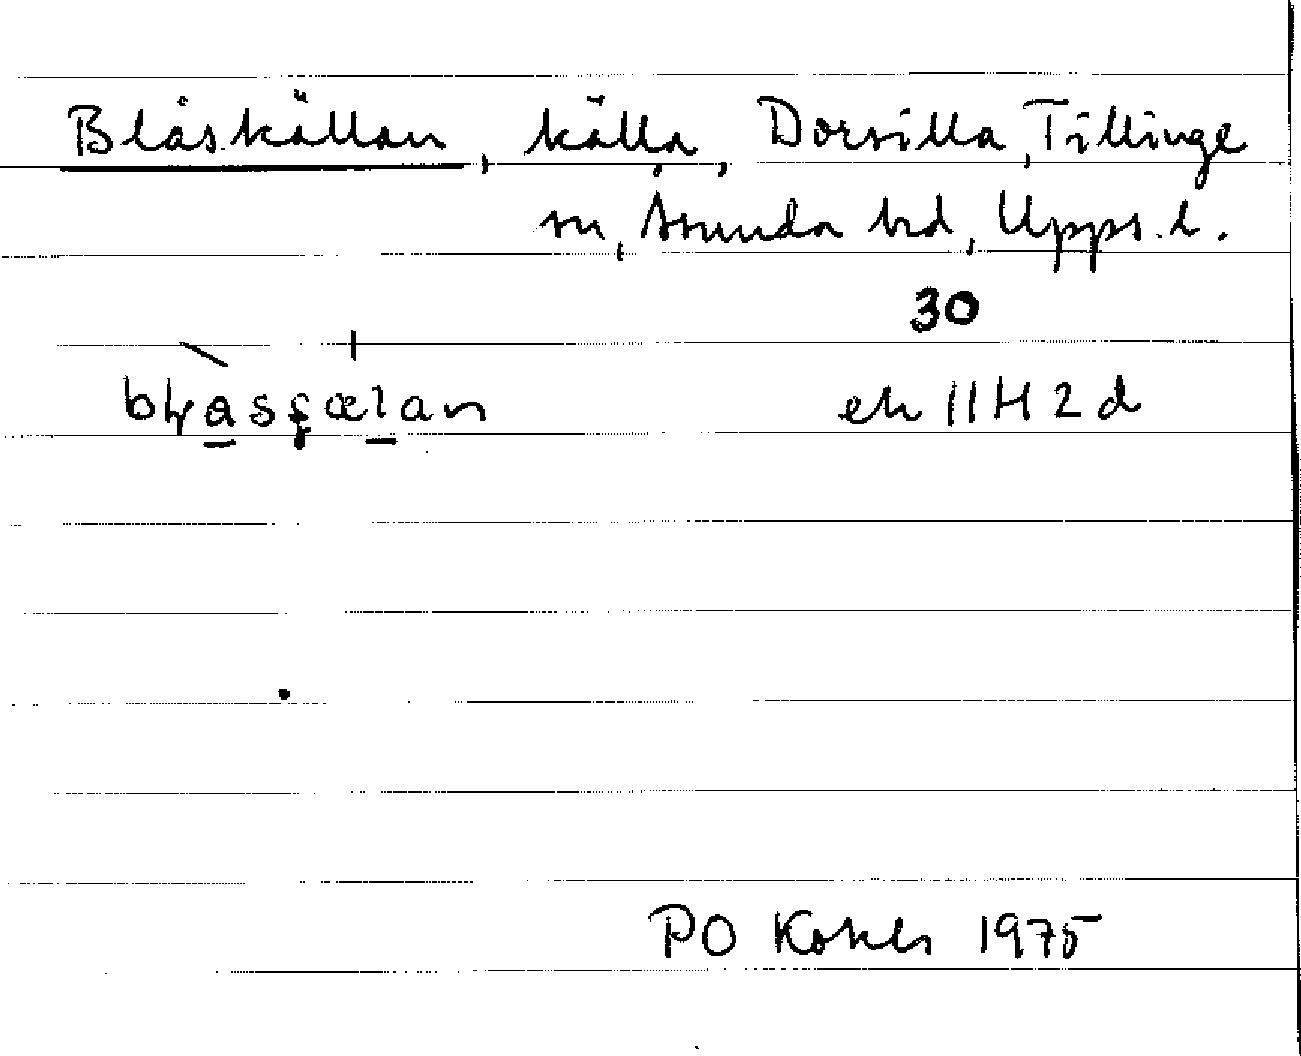 Blåskällan, källa, Dorsilla, Tillinge
sn, Asunda hd, Upps. l.
30
ek 11H2d
PO Kohls 1975